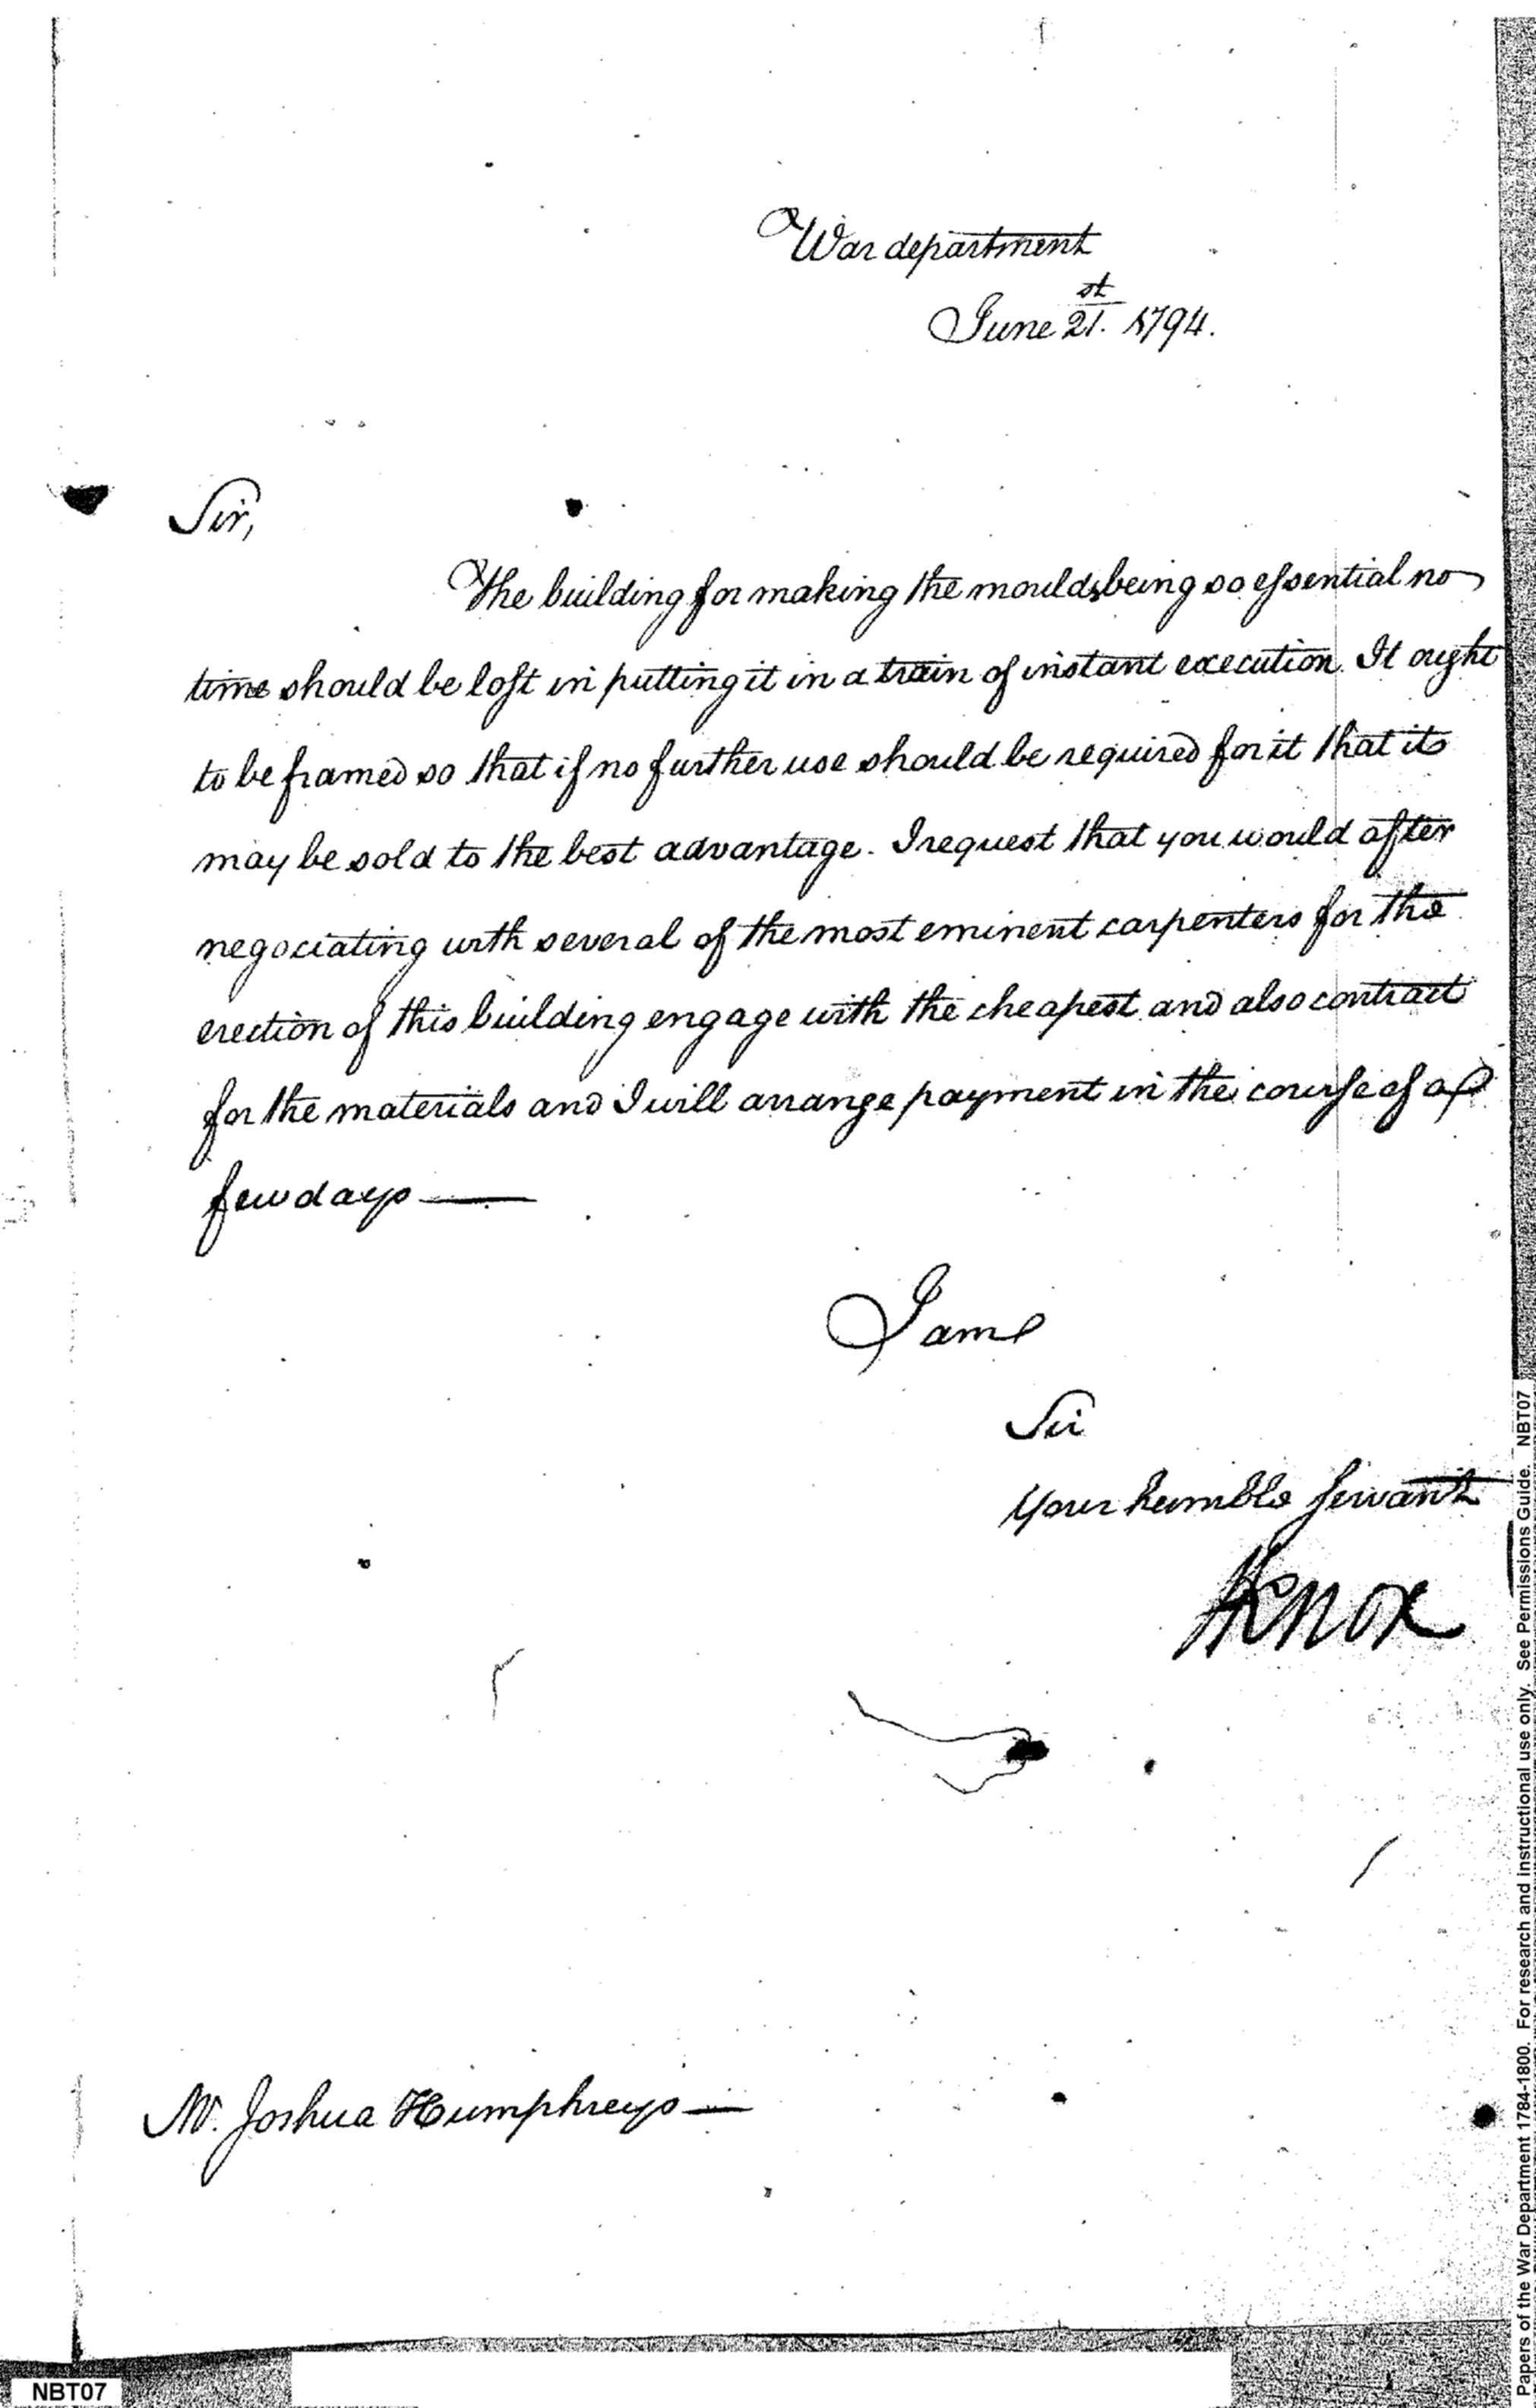 War department
June 21.st 1794.
Sir,
The building for making the moulds being so essential no
time should be lost in putting it in a train of instant execution. It ought
to be framed so that if no further use should be required for it that it
may be sold to the best advantage. I request that you would after
negociating with several of the most eminent carpenters for the
erection of this building engage with the cheapest and also contract
for the materials and I will arrange payment in the course of a
few days —
I am
Sir
Your humble servant
HKnox
Mr. Joshua Humphreys —
NBT07
Papers of the War Department 1784-1800. For research and instructional use only. See Permissions Guide. NBT07